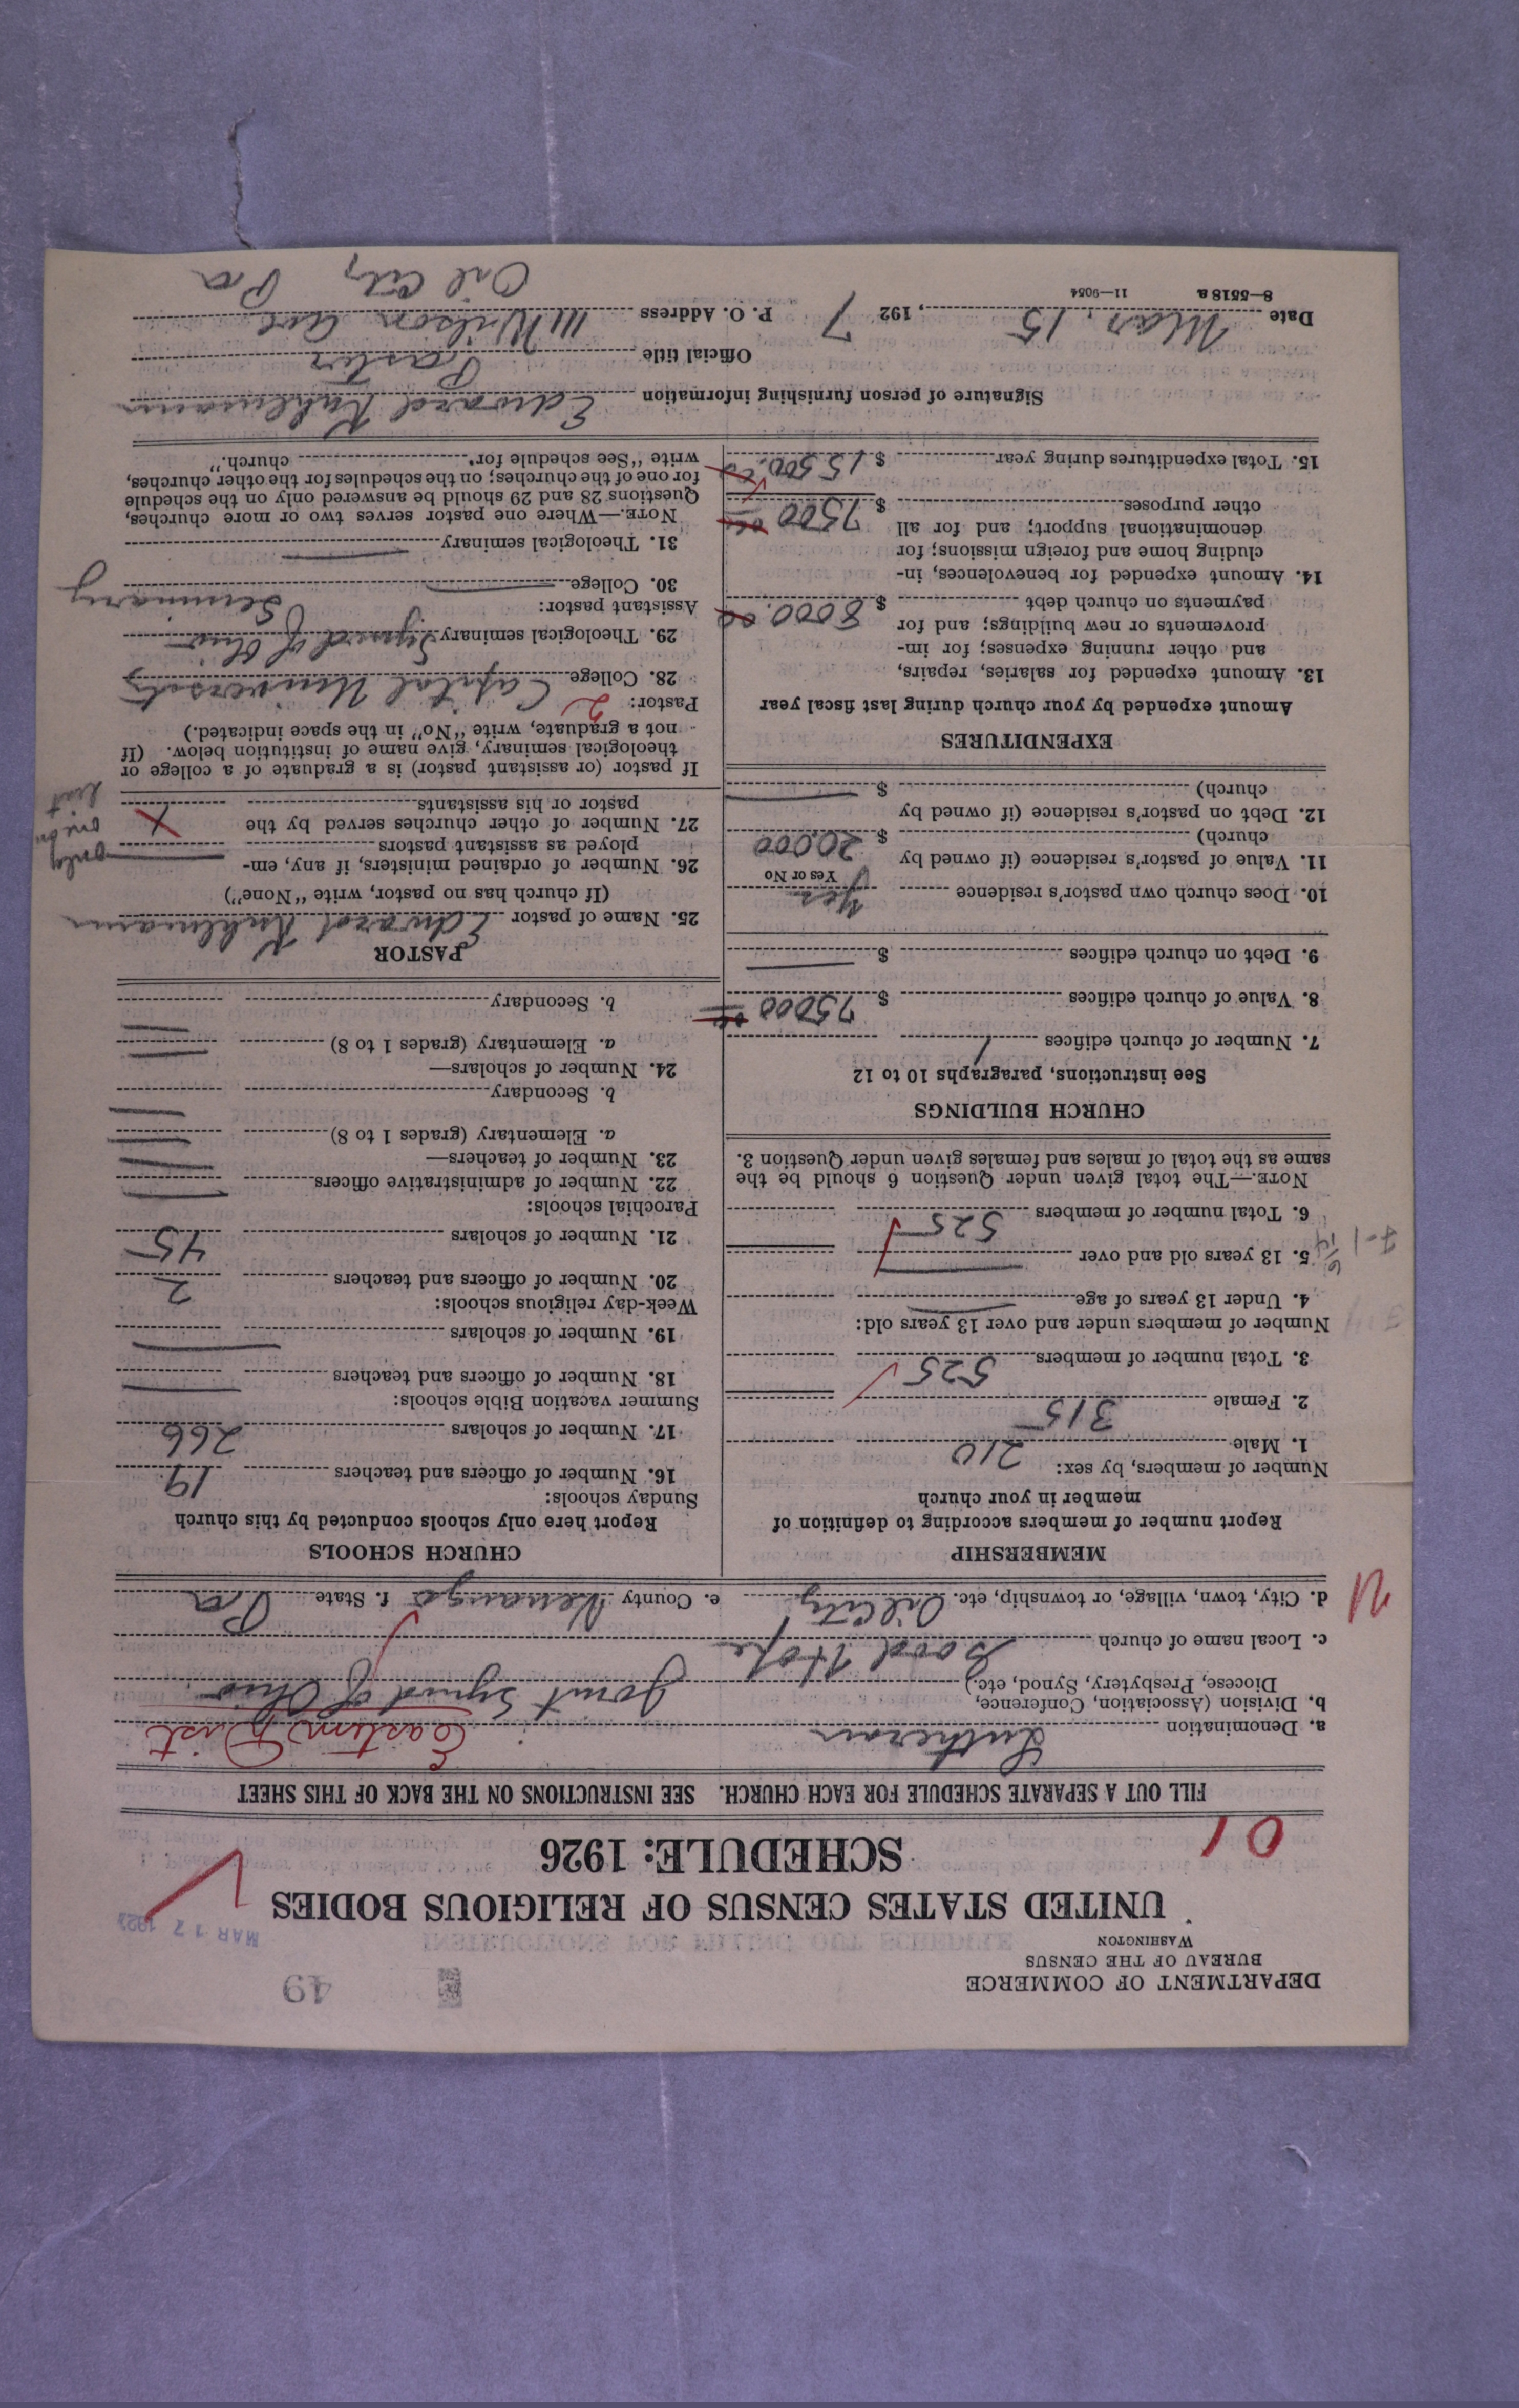 DEPARTMENT OF COMMERCE
BUREAU OF THE CENSUS
WASHINGTON
49
MAR 17 1927
UNITED STATES CENSUS OF RELIGIOUS BODIES
SCHEDULE: 1926
01
FILL OUT A SEPARATE SCHEDULE FOR EACH CHURCH. SEE INSTRUCTIONS ON THE BACK OF THIS SHEET
a. Denomination Lutheran Eastern Dist
b. Division (Association, Conference,
Diocese, Presbytery, Synod, etc.) Joint Synod of Ohio
c. Local name of church Good Hope
d. City, town, village, or township, etc. Oil City e. County Venango f. State Pa
MEMBERSHIP
Report number of members according to definition of
member in your church
Number of members, by sex:
1. Male 210
2. Female 315
3. Total number of members 525
Number of members under and over 13 years old:
4. Under 13 years of age
5. 13 years old and over
6. Total number of members 525
NOTE.—The total given under Question 6 should be the
same as the total of males and females given under Question 3.
CHURCH BUILDINGS
See instructions, paragraphs 10 to 12
7. Number of church edifices 1
8. Value of church edifices $ 75000 00
9. Debt on church edifices $
10. Does church own pastor's residence Yes
Yes or No
11. Value of pastor's residence (if owned by
church) $ 20,000
12. Debt on pastor's residence (if owned by
church) $
EXPENDITURES
Amount expended by your church during last fiscal year
13. Amount expended for salaries, repairs,
and other running expenses; for im-
provements or new buildings; and for
payments on church debt $ 8000.00
14. Amount expended for benevolences, in-
cluding home and foreign missions; for
denominational support; and for all
other purposes $ 7500 00
15. Total expenditures during year $ 15500.00
CHURCH SCHOOLS
Report here only schools conducted by this church
Sunday schools:
16. Number of officers and teachers 19
17. Number of scholars 266
Summer vacation Bible schools:
18. Number of officers and teachers
19. Number of scholars
Week-day religious schools:
20. Number of officers and teachers 2
21. Number of scholars 45
Parochial schools:
22. Number of administrative officers
23. Number of teachers—
a. Elementary (grades 1 to 8)
b. Secondary
24. Number of scholars—
a. Elementary (grades 1 to 8)
b. Secondary
PASTOR
25. Name of pastor Edward Kuhlmann
(If church has no pastor, write "None")
26. Number of ordained ministers, if any, em-
ployed as assistant pastors
27. Number of other churches served by the
pastor or his assistants
only
If pastor (or assistant pastor) is a graduate of a college or
theological seminary, give name of institution below. (If
not a graduate, write "No" in the space indicated.)
Pastor: 2
28. College Capital University
29. Theological seminary Synod of Ohio
Seminary
Assistant pastor:
30. College
31. Theological seminary
NOTE.—Where one pastor serves two or more churches,
Questions 28 and 29 should be answered only on the schedule
for one of the churches; on the schedules for the other churches,
write "See schedule for church."
Signature of person furnishing information Edward Kuhlmann
Official title Pastor
Date Mar. 15, 1927 P. O. Address 111 Wilson Ave
Oil City, Pa
8—5518 a 11—9054